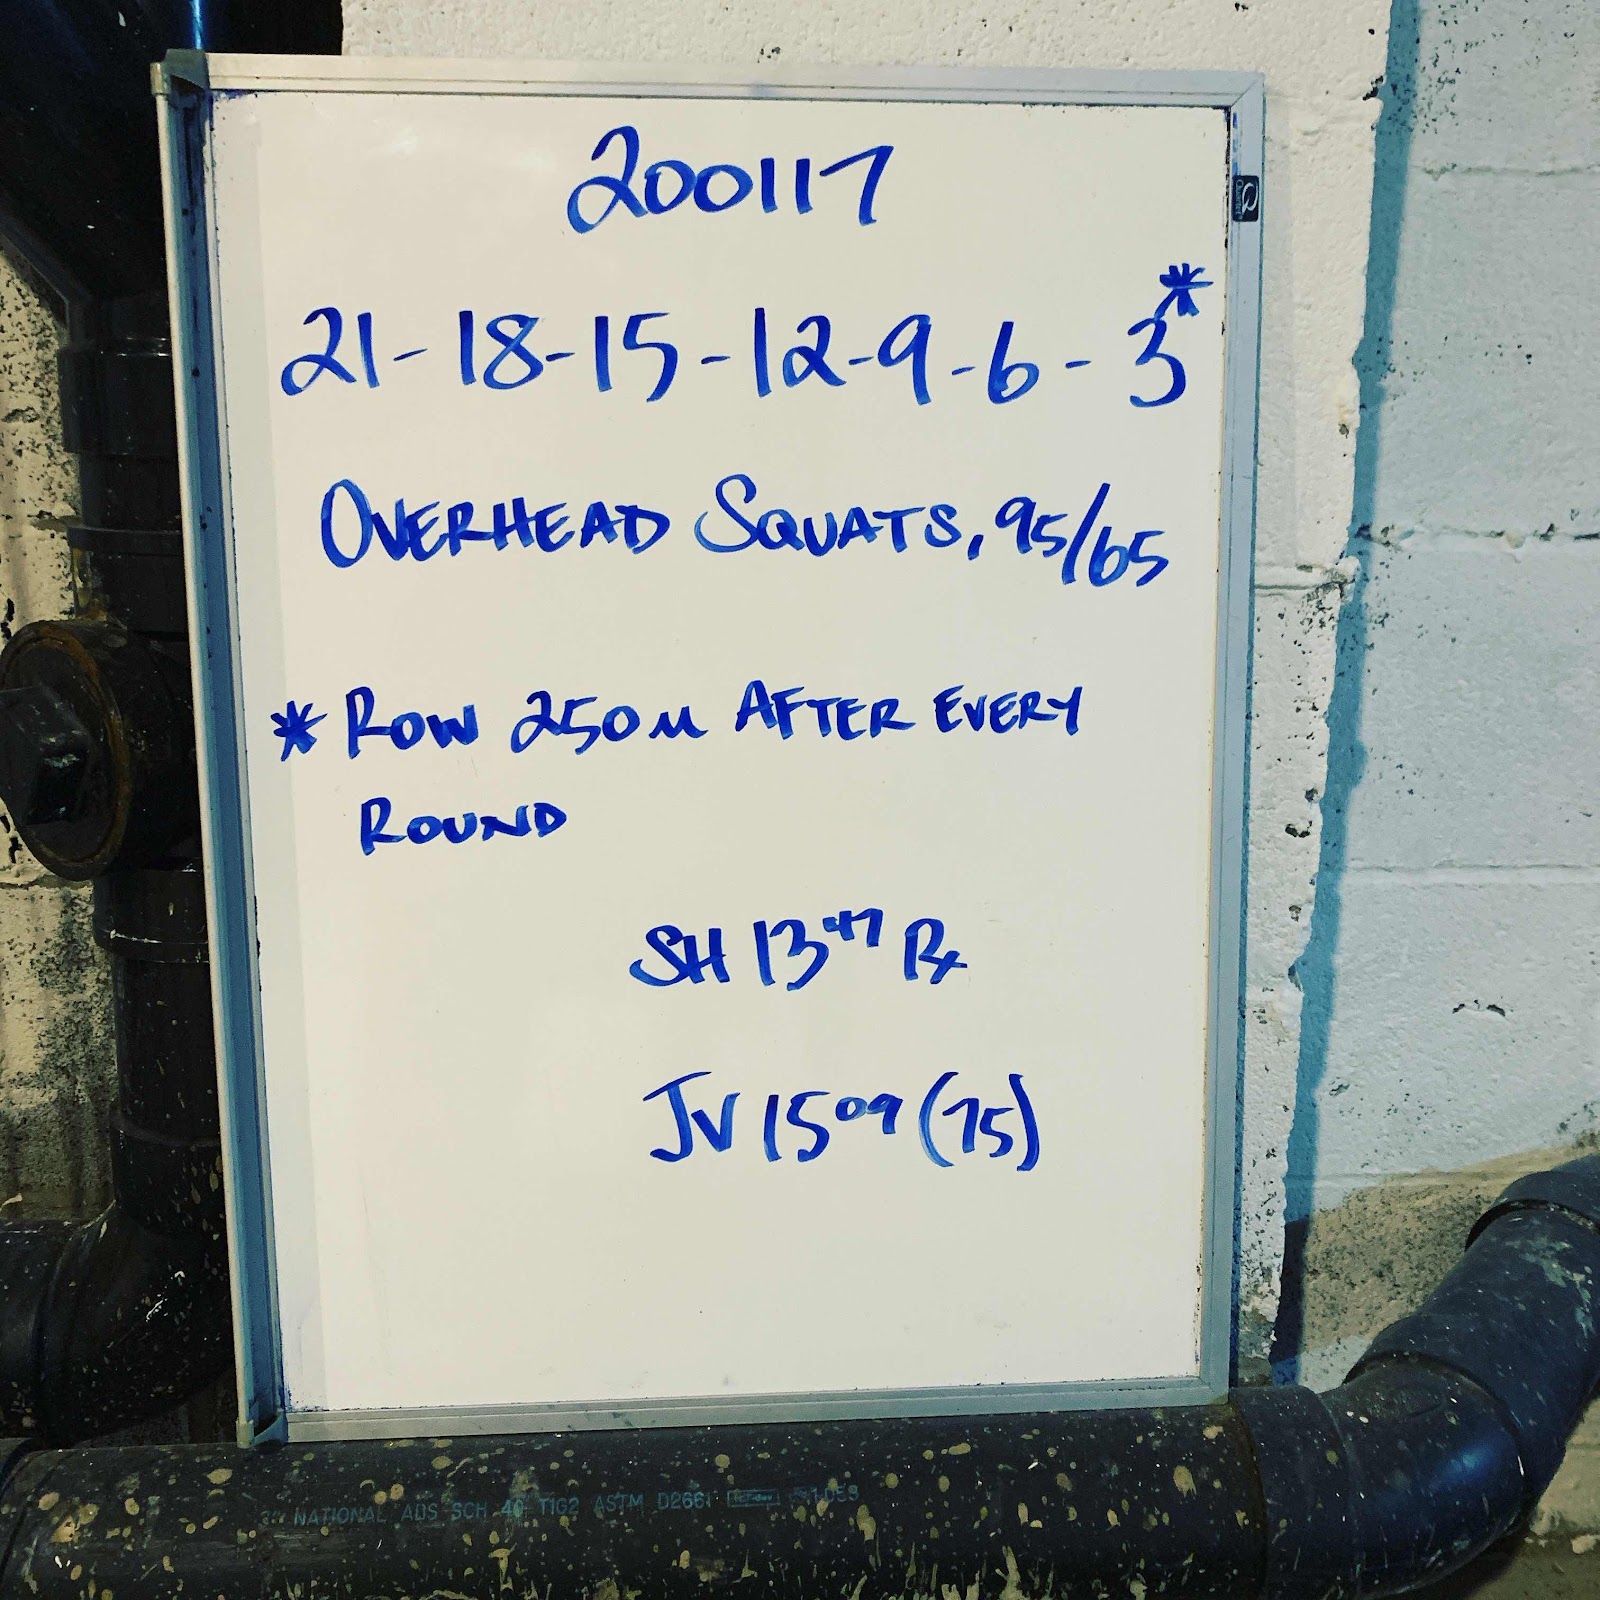 200117
21-18-15-12-9-6-3*
OVERHEAD SQUATS, 95/65
* ROW 250M AFTER EVERY
ROUND
SH 13 47 Rx
JV 15 09 (75)
NATIONAL ABS SCH 40 TIG2 ASTM D2661